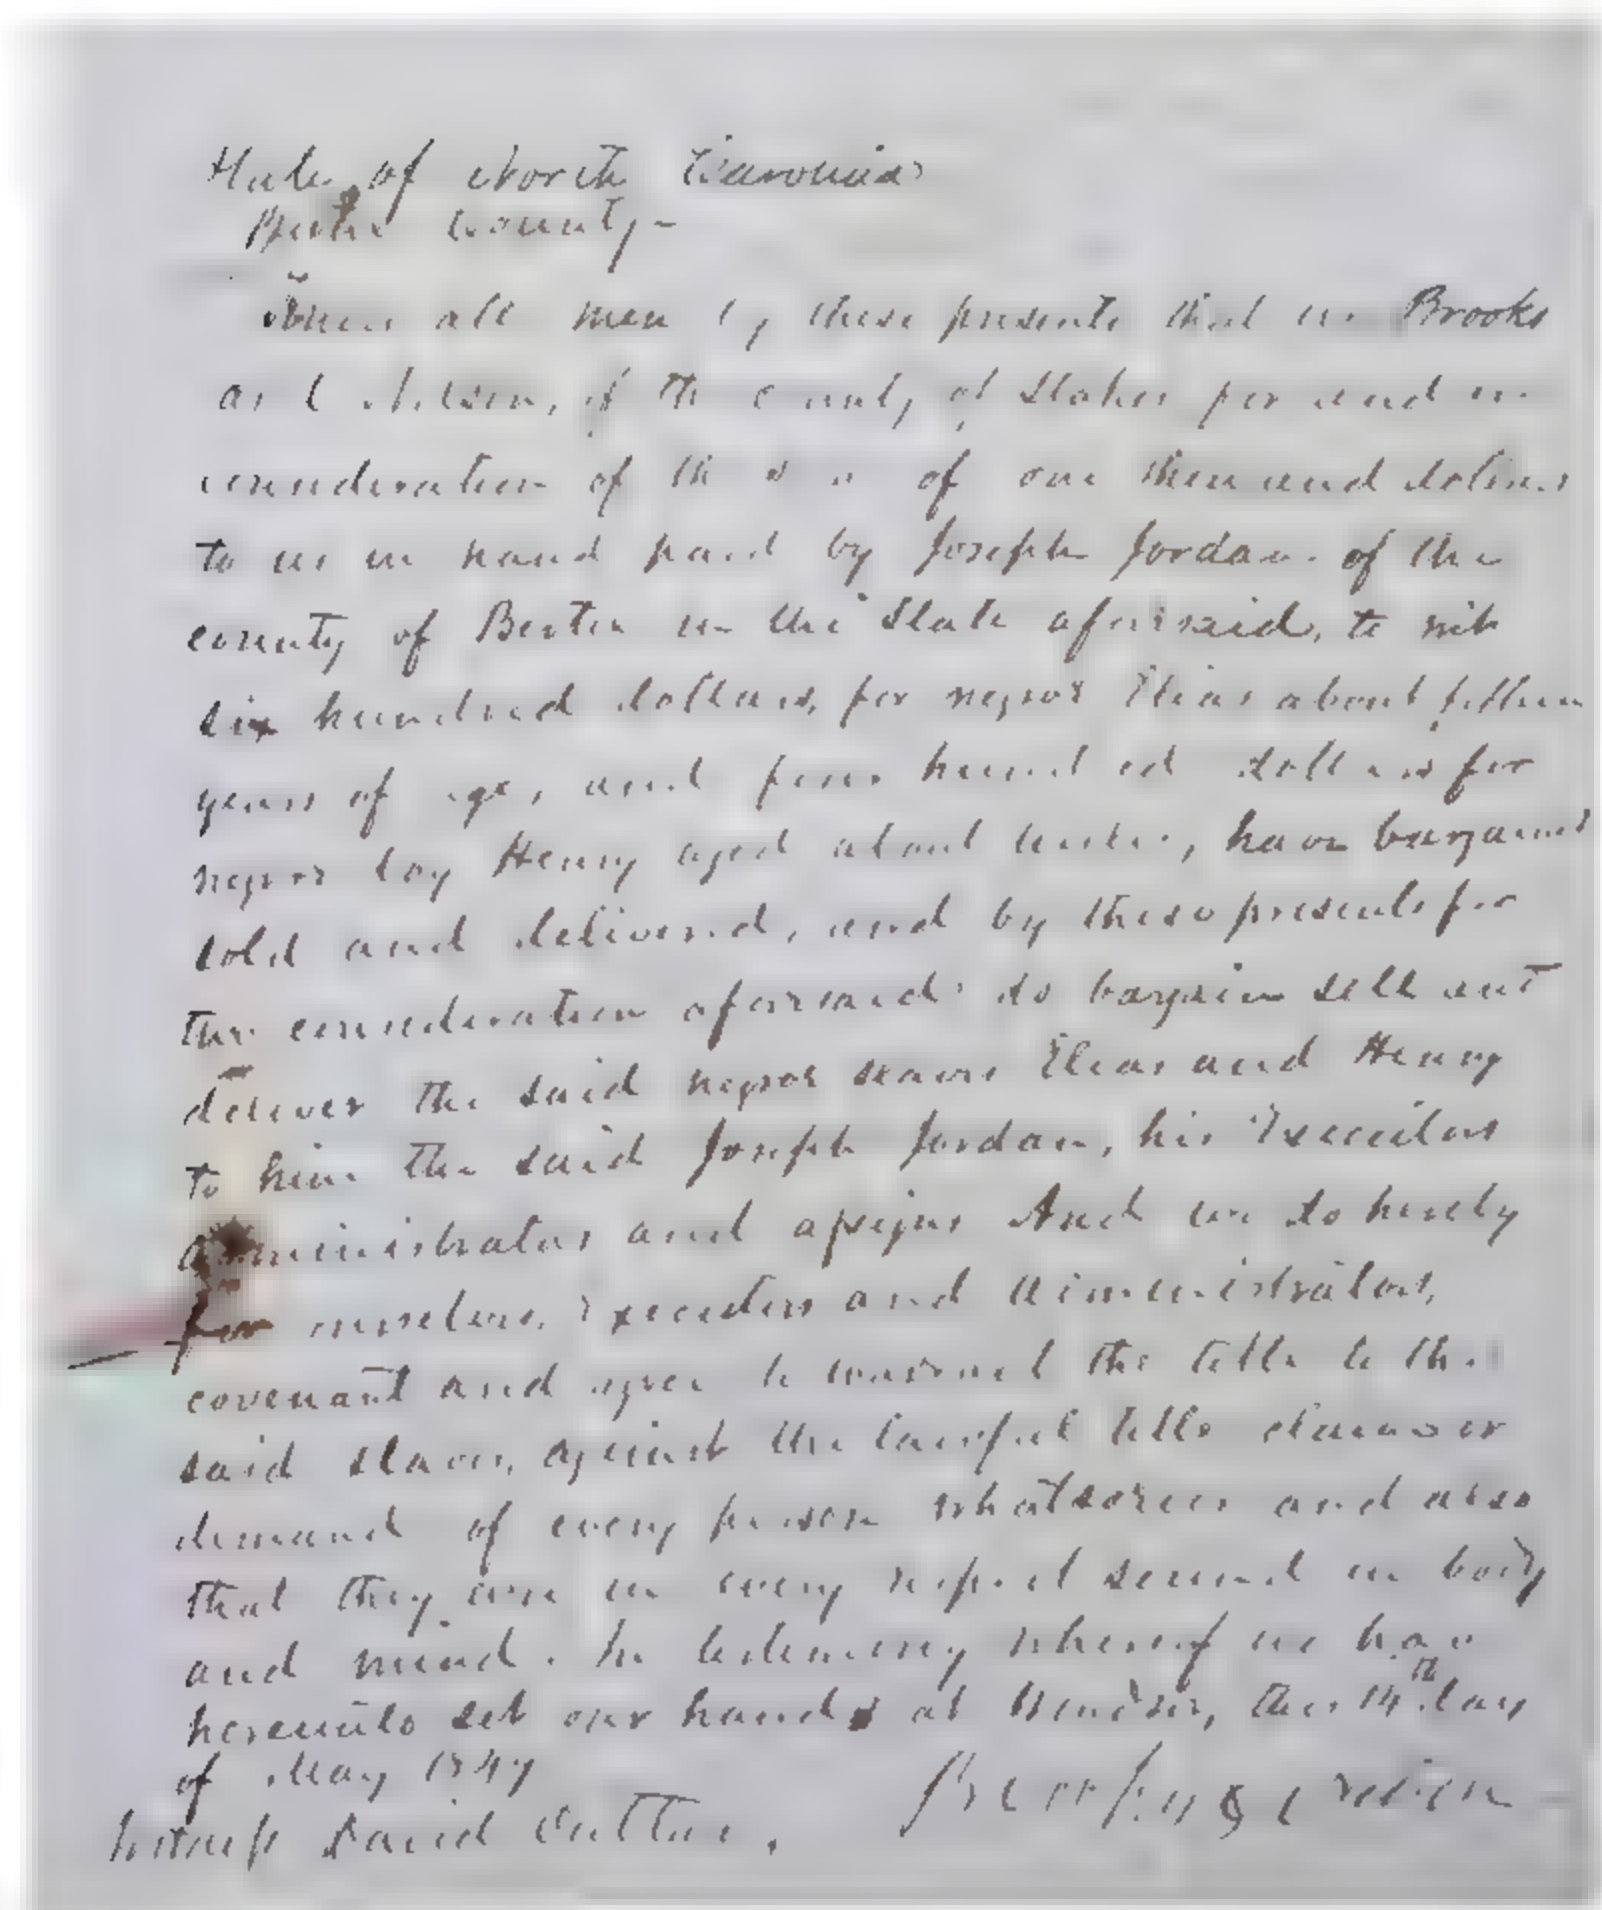 State of North Carolina
Bertie County -
Know all men by these presents that we Brooks
and Nelson, of the County of Stokes for and in
consideration of the sum of one thousand dollars
to us in hand paid by Joseph Jordan of the
county of Bertie in the State aforesaid, to wit
six hundred dollars, for negro Elias about fifteen
years of age, and four hundred dollars for
negro boy Henry aged about twelve, have bargained
sold and delivered, and by these presents for
the consideration aforesaid do bargain sell and
deliver the said negro slaves Elias and Henry
to him the said Joseph Jordan, his Executors
administrators and assigns And we do hereby
for ourselves, Executors and administrators,
covenant and agree to warrant the title to the
said slaves, against the lawful title claims or
demand of every person whatsoever and also
that they are in every respect sound in body
and mind. In testimony whereof we have
hereunto set our hands at Windsor, this 14th day
of May 1847
Witness David Outlaw. Brooks &